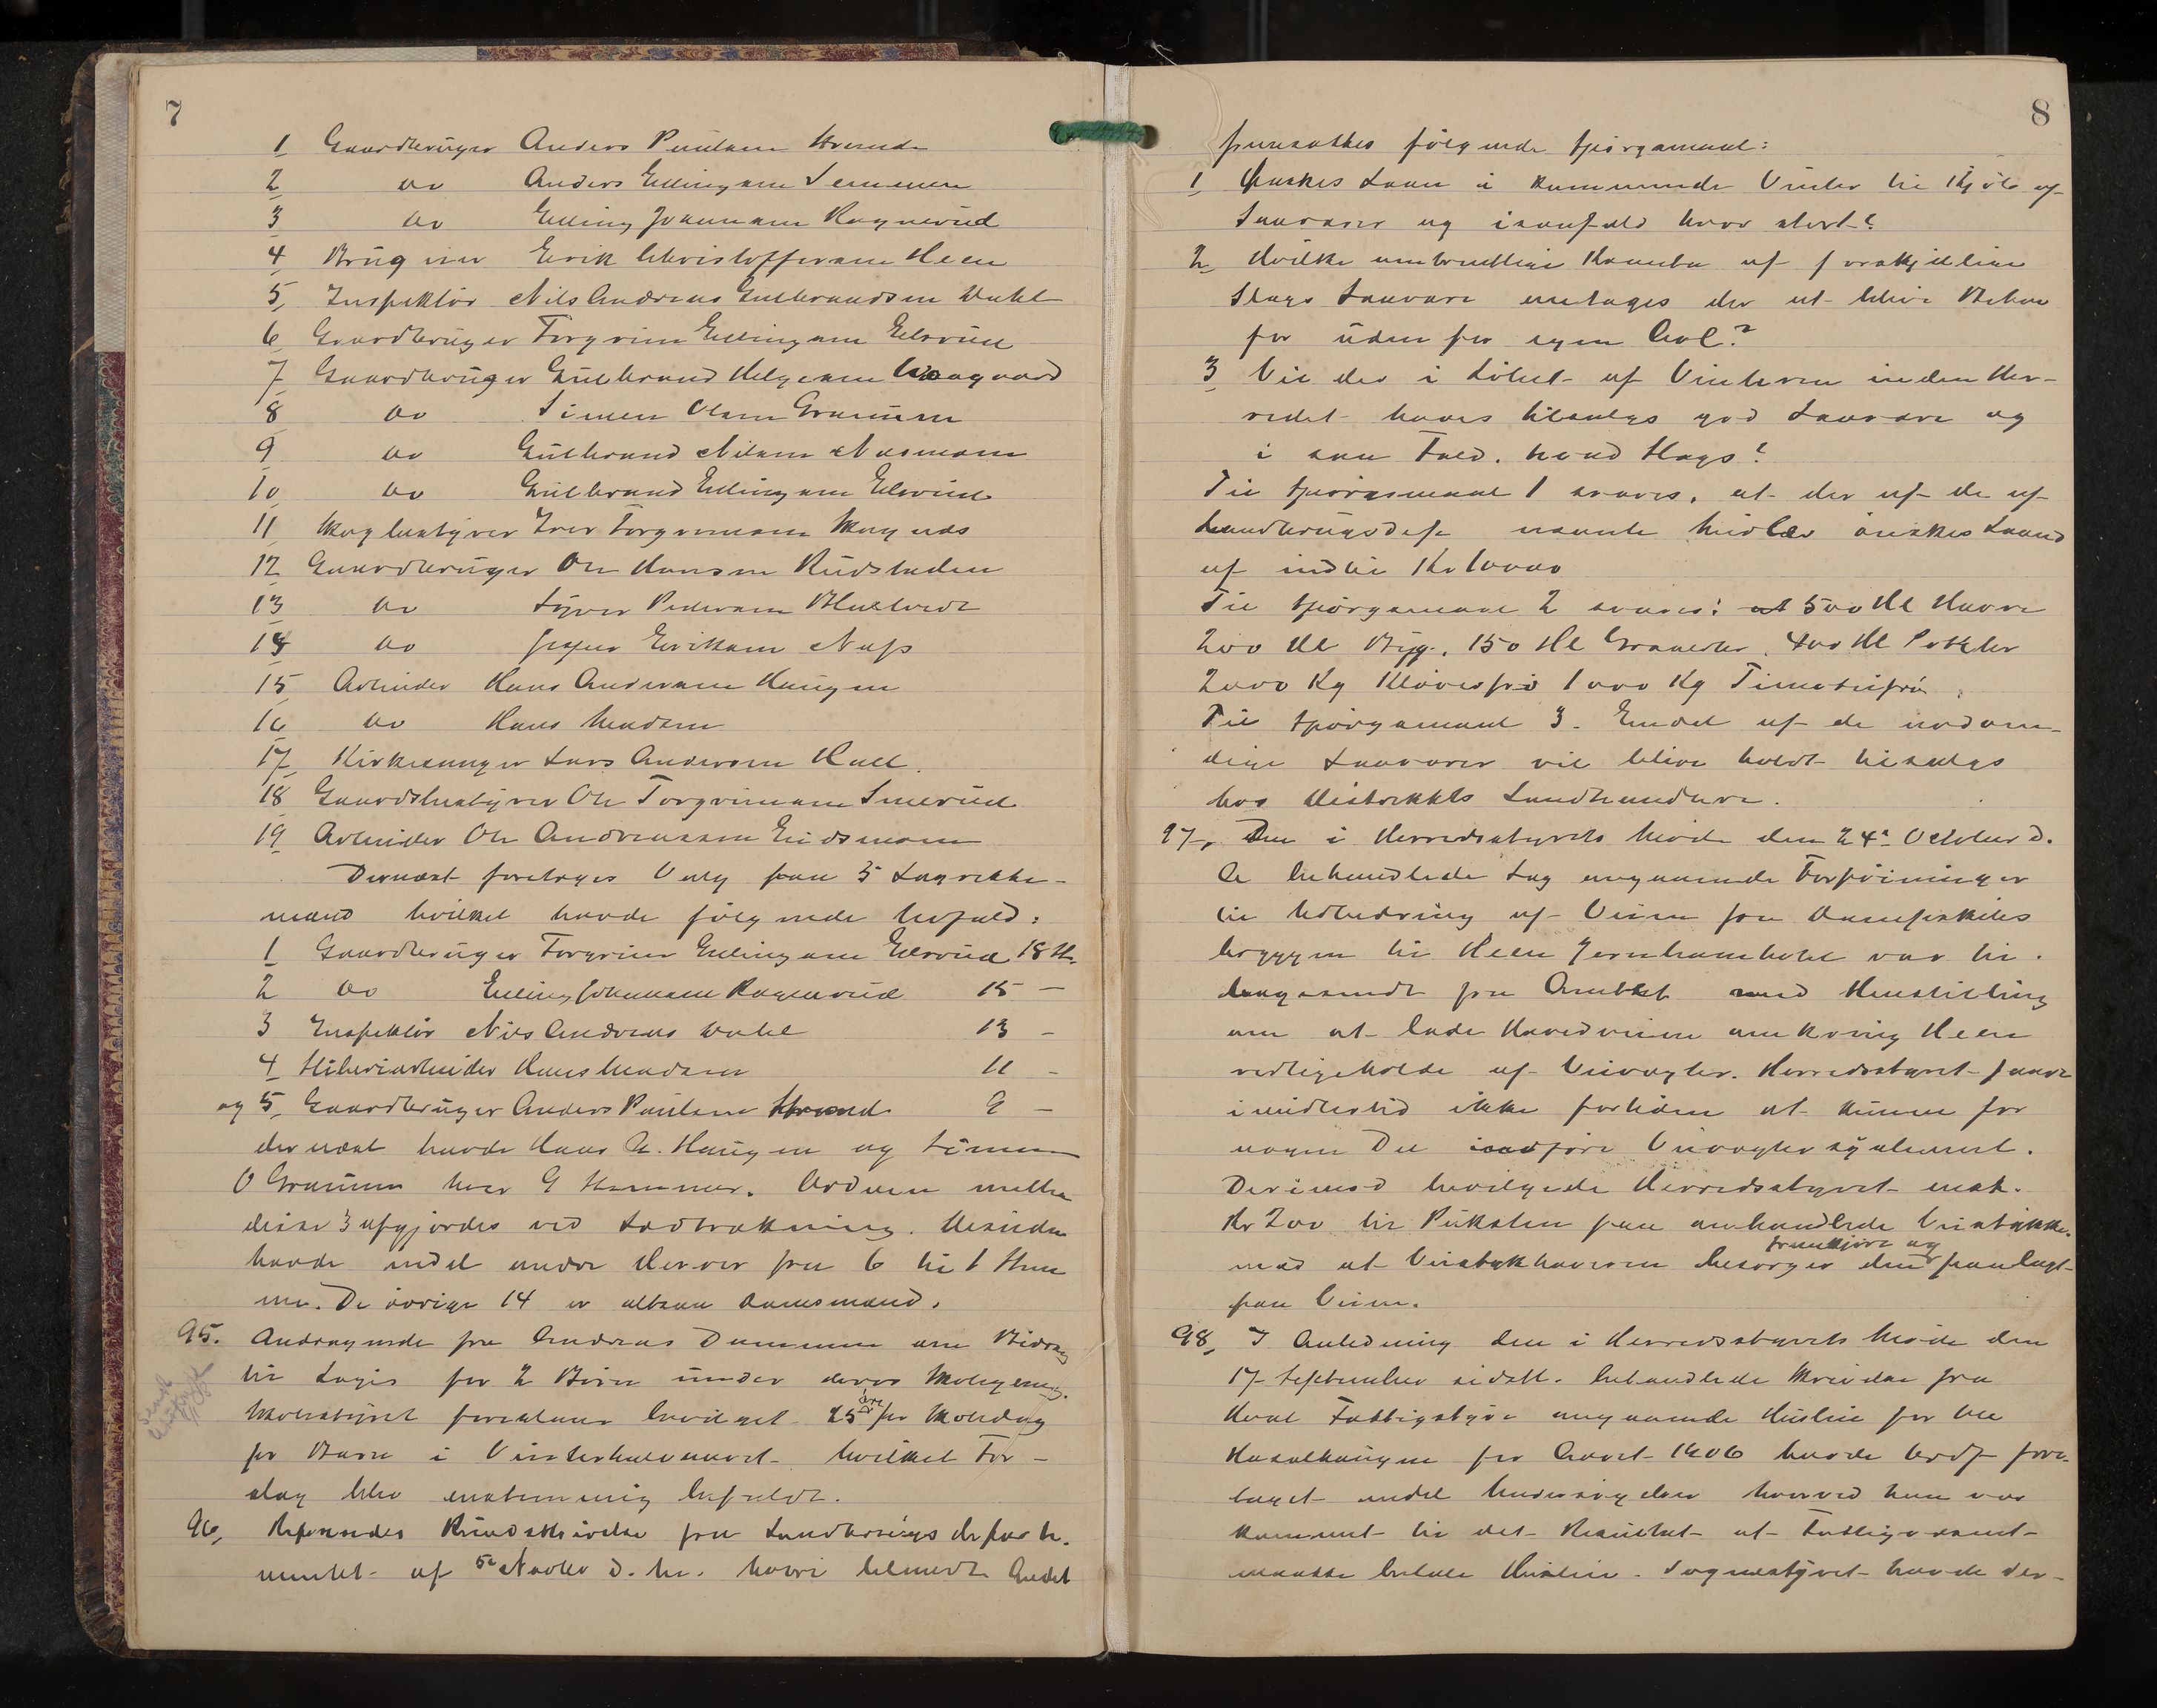 7
1 Gaardbruger Anders Paulsen Strande
2 do Anders Ellingsen Semmen
3 do Elling Johannesen Ragnerud
4 Brugeier Erik Christoffersen Heen
5, Inspektör Nils Andreas Gulbrandsen Dahl
6, Gaardbruger Torgrim Ellingsen Elsrud
7 Gaardbruger Gulbrand Helgesen Vaagaard
8 do Simen Olsen Gramum
9 do Gulbrand Nilsen Næsmoen
10 do Gulbrand Ellingsen Elsrud
11 Skogbestyrer Iver Torgrimsen Skagnæs
12 Gaardbruger Ole Hansen Rudstaden
13 do Syver Pedersen
14 do Eriksen Næss
15 Arbeider Hans Andersen Haugen
16 do Hans Madsen
17 Kirkesanger Lars Andersen Hall
18 Gaardsbestyrer Ole Torgrimsen Smerud
19 Arbeider Ole Andreassen Eidsmoen
Dernæst foretoges Valg paa 5 Lagrette-
mænd hvilket havde følgende Udfald:
1 Gaardbruger Torgrim Ellingsen Elsrud 18 St.
2 do Elling Johannesen Ragnerud 15 —
3 Inspektör Nils Andreas Dahl 13 -
4 Sliberiarbeider Hans Madsen 11 -
og 5, Gaardbruger Anders Paulsen Strand 9 —
dernæst havde Hans A. Haugen og Simen
O Gramum hver 9 Stemmer. Ordenen mellem
disse 3 afgjordes ved Lodtrækning. Desuden
havde endel andre Herrer fra 6 til 1 Stem
me. De övrige 14 er altsaa Domsmænd.
95. Andragende fra Andreas Dammen om Bidrag
til Logis for 2 Børn under deres Skolegang.
Skolestyret foreslaar bevilget 25 øre pr Skoledag
pr Barn i Vinterhalvaaret hvilket For-
slag blev enstemmig bifaldt.
96, Refereredes Rundskrivelse fra Landbrugsdeparte-
mentet af 5te Novbr d. A. hvori blandt Andet
8
fremsattes følgende Spörgsmaal:
1 Ønskes Laan i kommende Vinter til Kjöb af
Saavarer og isaafald hvor stort?
2, Hvilke omtrentlige Kvanta af forskjellige
Slags Saavare antages der at blive Behov
for uden for egen Avl?
3 Vil der i Löbet af Vinteren inden Her-
redet haves tilsalgs god Saavare og
i saa Fald. hvad Slags?
Til Spörgsmaal 1 svares, at der af de af
Landbrugsdep nævnte Midler önskes Laand
af indtil Kr 10000
Til Spörgsmaal 2 svares: 500 Hl Havre
200 Hl Byg. 150 Hl Graaerter. 400 Hl Poteter
2000 Kg Klöverfrö 1000 Kg Timoteifrö.
Til Spörgsmaal 3. Endel af de nödven-
dige Saavarer vil blive holdt tilsalgs
hos Distriktets Landhandlere.
97, Den i Herredsstyrets Möde den 24de October d.
A behandlede Sag angaaende Forföininger
til Udbedring af Veien fra Dampskibs
bryggen til Heen Jernbanehotel var til-
bagesendt fra Amtet med Henstilling
om at lade Hovedveien omkring Heen
vedligeholde af Veivogter. Herredsstyret fandt
imidlertid ikke fortiden at kunne for
nogen Del indföre Veivogtersystemet.
Derimod bevilgede Herredsstyret enst.
Kr 200 til Pukstein paa omhandlede Veistykke.
mod at Veistykhaveren besörger den fremkjört og paalagt
paa Veien.
98, I Anledning den i Herredsstyrets Möde den
17 September sidstl. behandlede Skrivelse fra
Hole Fattigstyre angaaende Husleie for
Hasselhaugen for Aaret 1906 havde Ordf fore-
taget endel Undersögelser hvorved han var
kommet til det Resultat at Fattigvæsenet
maatte betale Husleie. Sognestyret havde der-